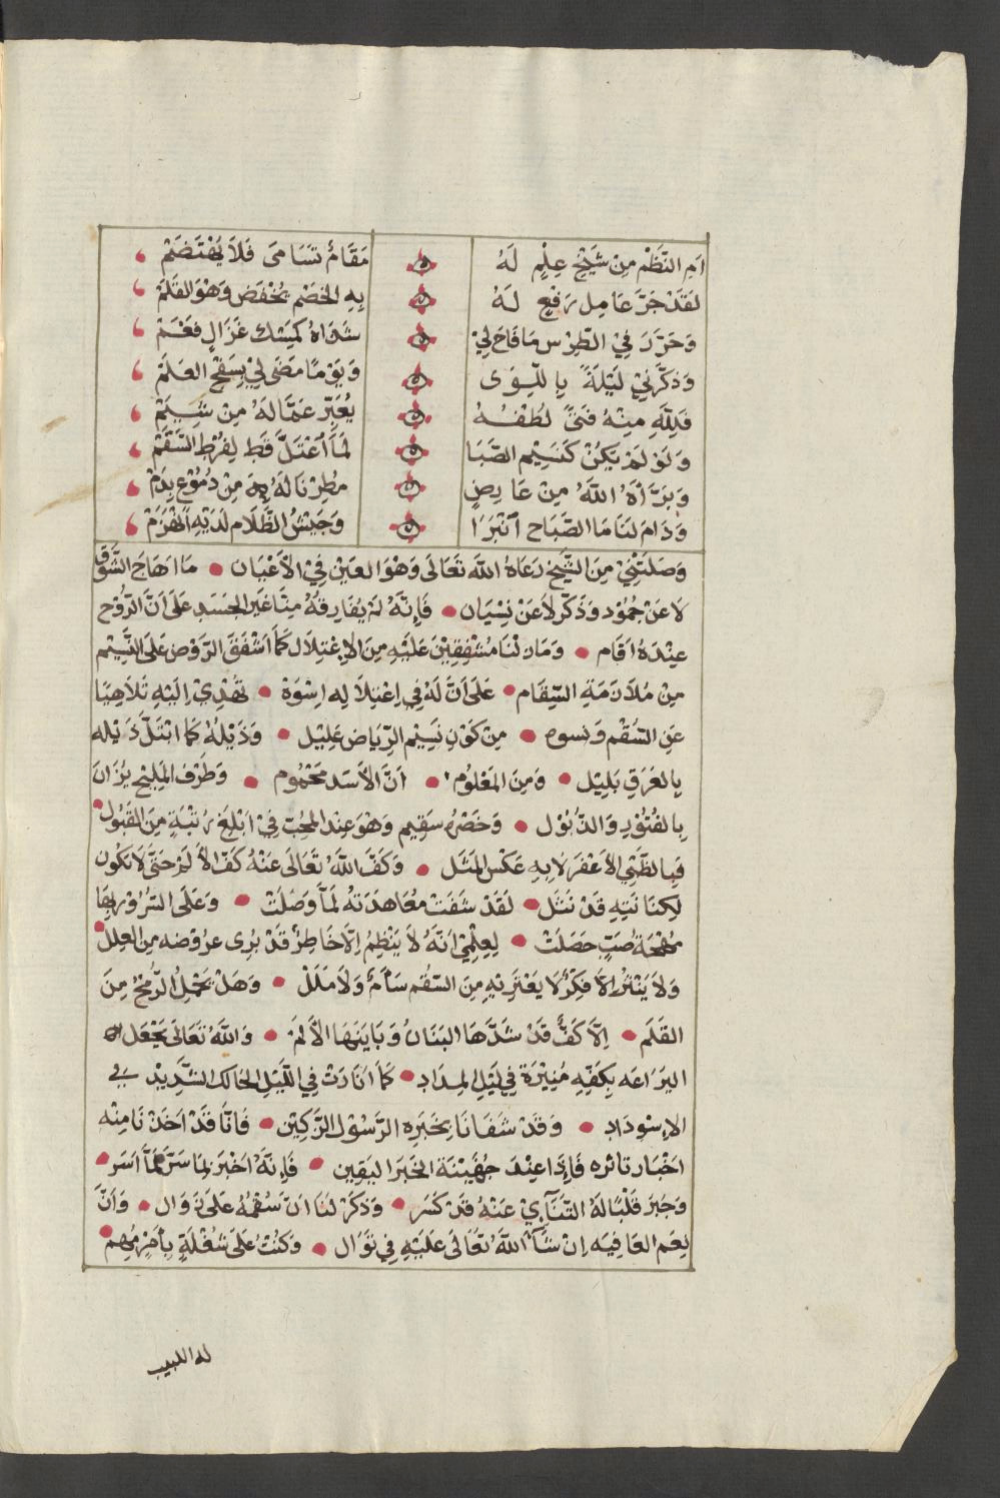 امِ النَّظْم مِنْ شَيْخِ عِلْمٍ لَهُ مَقَامٌ تَسَامَى فَلَا يُهْتَضَمْ
لَقَدْ جَرَّ عَامِل رَفْعٍ لَهُ بِهِ الخَصْم يُخْفَض وَهْوَ القَلَمْ
وَحَرَّرَ فِي الطِّرْس مَا فَاحَ لِيْ شَذَاهُ كَمِسْك غَزَالٍ فَغَمْ
وَذَكَّرَنِيْ لَيْلَةً بِاللِّوَى وَيَوْمًا مَضَى لِيْ بِسَفْحِ العَلَمْ
فَلِلَّهِ مِنْهُ فَتىً لُطْفُهُ يُعَبِّر عَمَّا لَهُ مِنْ شِيَمْ
وَلَوْ لَمْ يَكُنْ كَنَسِيْم الصَّبَا لَمَا اعْتَلَّ قَط لِفَرْط السَّقَمْ
وَبَرَّأَهُ اللَّهُ مِنْ عَارِضٍ مُطِرْنَا لَهُ مِنْ دُمُوْع بِدَمْ
وَدَامَ لَنَا مَا الصَّبَاح انْبَرَا وَجَيْشُ الظَّلَام لَدَيْهِ انْهَزَمْ
وَصَلَتْنِيْ مِنَ الشَّيْخ رَعَاهُ اللَّهُ تَعَالَى وَهْوَ العَيْن فِيْ الأَعْيَان • مَا اهَاجَ الشَّوْقَ
لَا عَنْ جُمُوْد وَذَكَّرَ لَا عَنْ نِسْيَان • فَإِنَّهُ لَمْ يُفَارِقهُ مِنَّا غَيْر الجَسَدِ عَلَى أَنَّ الرُّوْح
عِنْدَهُ اقَام • وَمَا زِلْنَا مُشْفِقِيْنَ عَلَيْهِ مِنَ الإِعْتِلَال كَمَا اشْفَقَ الرَّوْض عَلَى النَّسِيْم
مِنْ مُلَازَمَةِ السِّقَام • عَلَى أَنَّ لَهُ فِي اعْتِلَالِهِ اسْوَة • تَهْدِيْ إِلَيْهِ تَلَاهِيًا
عَنِ السَّقْم وَنسوه • مِنْ كَوْنِ نَسِيْم الرِّيَاض عَلِيْل • وَذَيْلُهُ كَمَا ابْتَلَّ ذَيْله
بِالعَرَقِ بَلِيْل • وَمِنَ المَعْلُوْم • أَنَّ الأَسَد مَحْمُوم • وَطَرْف المَلِيْح يُزَان
بِالفُتُوْرِ وَالذُّبُوْل • وَخَصْرُه سَقِيم وَهْوَ عِنْد المُحِبّ فِيْ ابْلَغ رُتْبَةٍ مِنَ القَبُول •
فَبِالظَّبْيِ الأَعْفَر لَا بِهِ عَكْس المَثَل • وَكَفَّ اللَّهُ تَعَالَى عَنْهُ كَفّ الأَلَمْ حَتَّى لَا تَكُون
لِكِنَانَتِهِ قَدْ نَثَل • لَقَدْ شَفَتْ مُعَاهَدَتُهُ لَمَّا وَصَلَتْ • وَعَلَى السُّرُوْر بِهَا
مُهْجَةُ صَبٍّ حَصَلَتْ • لِعِلْمِيْ انَّهُ لَا يَنْظِمُ إِلَّا خَاطِرٌ قَدْ بُرِى عَرُوْضه مِنَ العِلَل •
وَلَا يَنْثُرُ إِلَّا فِكْرٌ لَا يَعْتَرِيْهِ مِنَ السّقْم سَأَمٌ وَلَا مَلَلْ • وَهَلْ يَحْمِلُ الرُّمْحَ مِنَ
القَلَم • إِلَّا كَفٌّ قَدْ شَدَّهَا البَنَانُ وَبَايَنَهَا الأَلَمْ • وَاللَّهُ تَعَالَى يَجْعَل
اليَرَاعَه بِكَفِّهِ مُنِيْرَة فِي لَيْلِ المِدَاد • كَمَا انَارَتْ فِي اللَّيْلِ الحَالك الشَّدِيْد
الاِسْوِدَاد • وَقَدْ شَفَانَا بِخَبَرِه الرَّسُوْل الزَّكِيْن • فَانَّا قَدْ اخَذْنَا مِنْه
اخْبَار تاثره فَإِذَا عِنْدَ جُهَيْنَة الخَبَرَ اليَقِين • فَإِنَّهُ اخْبَرَنَا سَرَّ لَمَّا اسَر •
وَجَبَرَ قَلْبًا لَهُ التَّنَآئِيْ عَنْهُ قَدْ كَسَر • وَذَكَرَ لَنَا انَّ سُقْمُهُ عَلَى زَوَال • وَأَنَّ
نِعَم العَافِيَه اِنْ شَآءَ اللَّهُ تَعَالَى عَلَيْهِ فِي تَوَال • وَكُنْتُ عَلَى شُغْلَةٍ بِأَمْرٍ مُهِمٍ •
له اللبيب